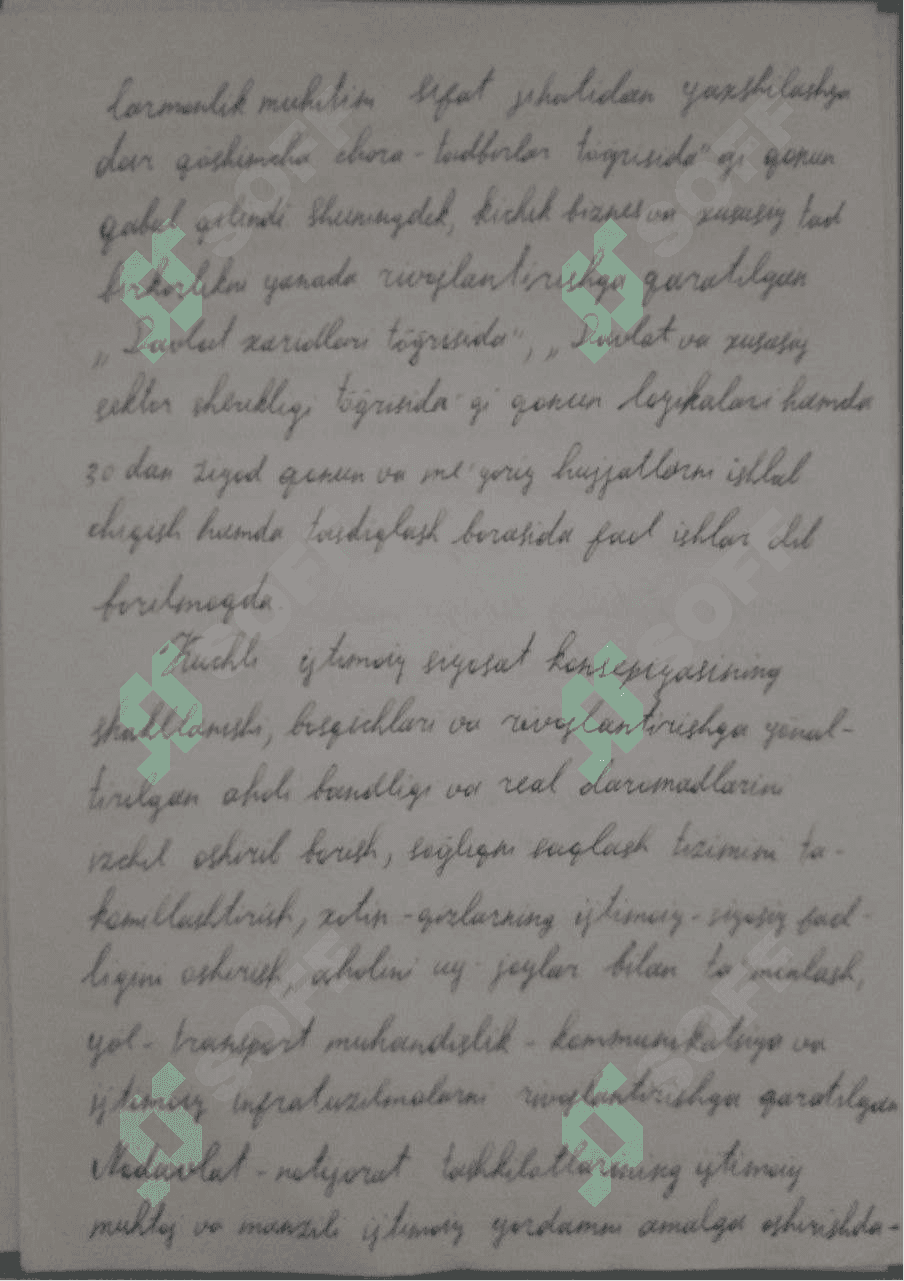 larmonlik muhitini sifat jihatidan yaxshilashga
doir qöshimcha chora-tadbirlar tögrisida"gi qonun
qabul qilindi Shuningdek, kichik biznes va xususiy tad
birkorlikni yanada rivojlantirishga qaratilgan
„Davlat xaridlari töğrisida", „Davlat va xususiy
sektor sherikligi töğrisida gi qonun loyihalari hamda
30 dan ziyod qonun va me'yoriy hujjatlarni ishlab
chiqish hamda tasdiqlash borasida faol ishlar olib
borilmoqda.
Kuchli ijtimoiy siyosat konsepiyasining
shakllanishi, bosqichlari va rivojlantirishga yönal-
tirilgan aholi bandligi va real daromadlarini
izchil oshirib borish, soğliqni saqlash tizimini ta-
komillashtirish, xotin-qizlarning ijtimoiy-siyosiy faol-
ligini oshirish, aholini uy-joylar bilan ta'minlash,
yöl-transport muhandislik-kommunikatsiya va
ijtimoiy infratuzilmalarni rivojlantirishga qaratilgan
Nodavlat-notijorat tashkilotlarining ijtimoiy
muhtoj va manzili ijtimoiy yordamni amalga oshirishda-
SOFF
SOFF
SOFF
SOFF
SOFF
SOFF